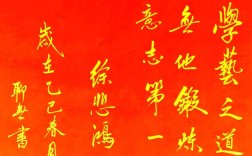 學藝之道
無他鍛煉
意志第一
徐悲鴻
歲在乙巳春月
聊書